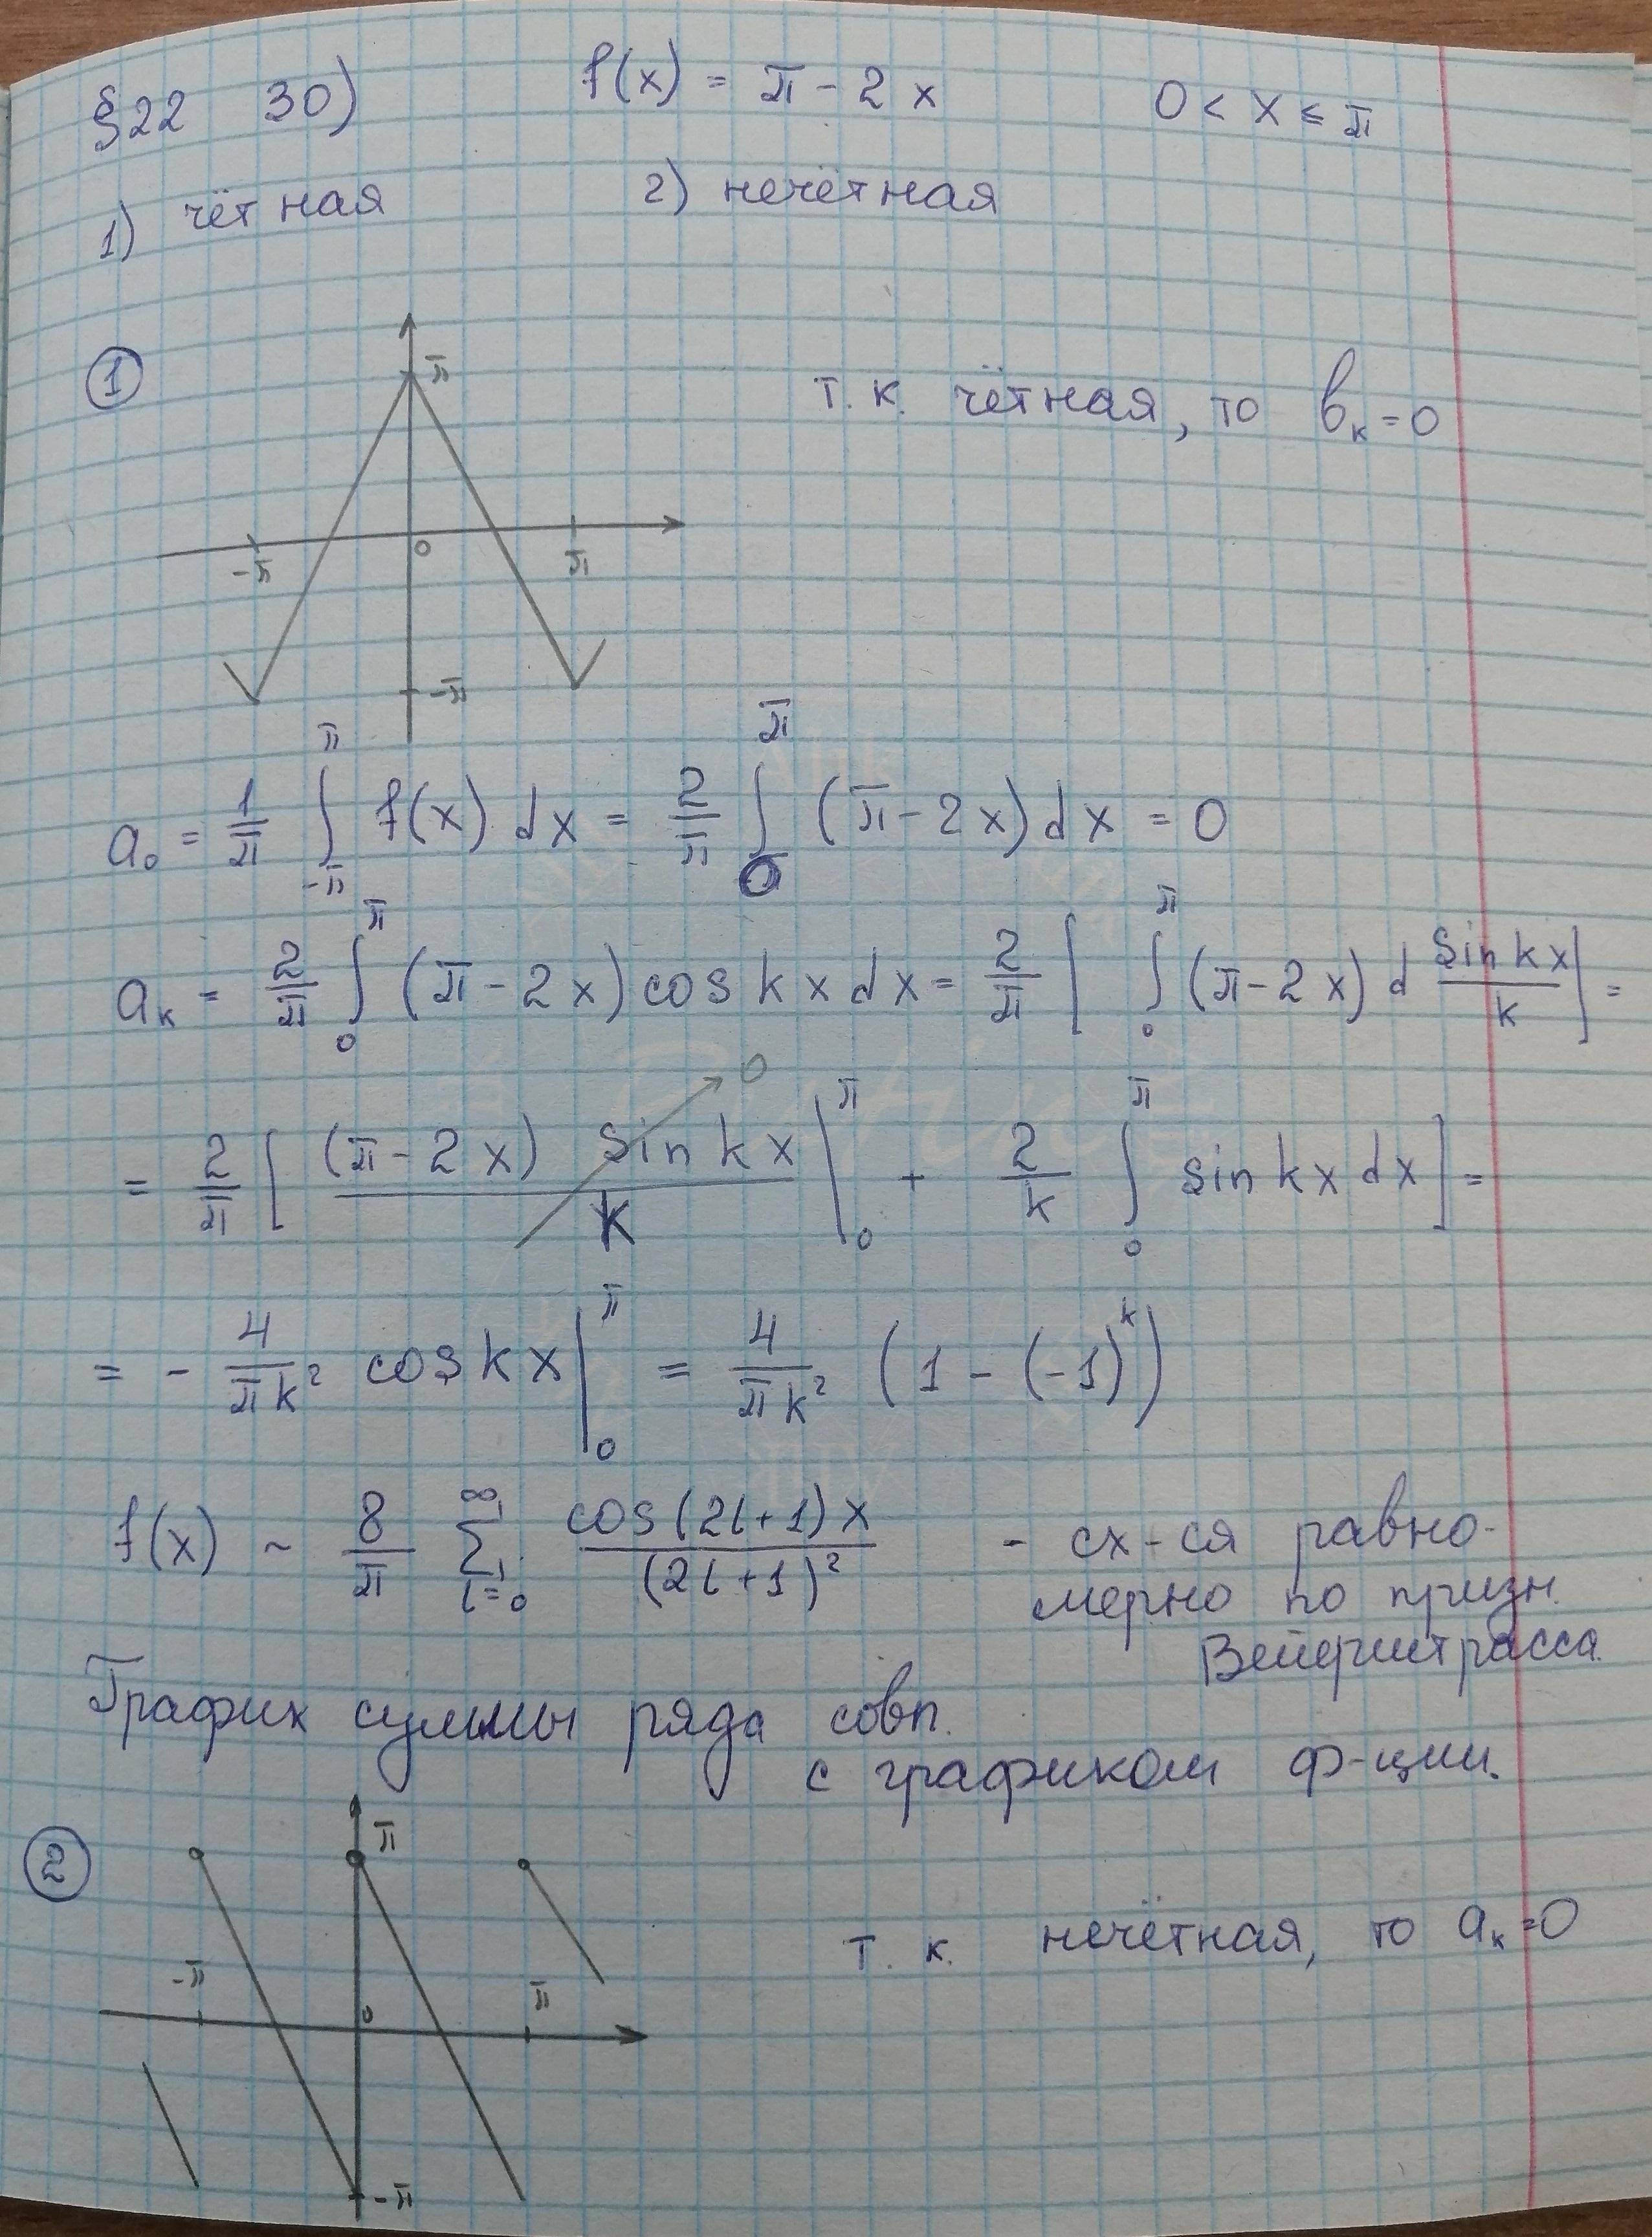 §22 30) f(x) = π - 2x 0 < x ≤ π
1) чётная 2) нечётная
①
π
т. к. чётная, то b_k = 0
-π 0 π
-π
a_0 = 1/π ∫_{-π}^{π} f(x) dx = 2/π ∫_0^π (π - 2x) dx = 0
a_k = 2/π ∫_0^π (π - 2x) cos kx dx = 2/π [ ∫_0^π (π - 2x) d (sin kx)/k ] =
= 2/π [ (π - 2x) sin kx / k |_0^π → 0 + 2/k ∫_0^π sin kx dx ] =
= - 4/(πk²) cos kx |_0^π = 4/(πk²) (1 - (-1)^k)
f(x) ~ 8/π ∑_{l=0}^∞ cos(2l+1)x / (2l+1)² - сх-ся равно-
мерно по призн.
Вейерштрасса.
График суммы ряда совп.
с графиком ф-ции.
②
π
т. к. нечётная, то a_k = 0
-π 0 π
-π